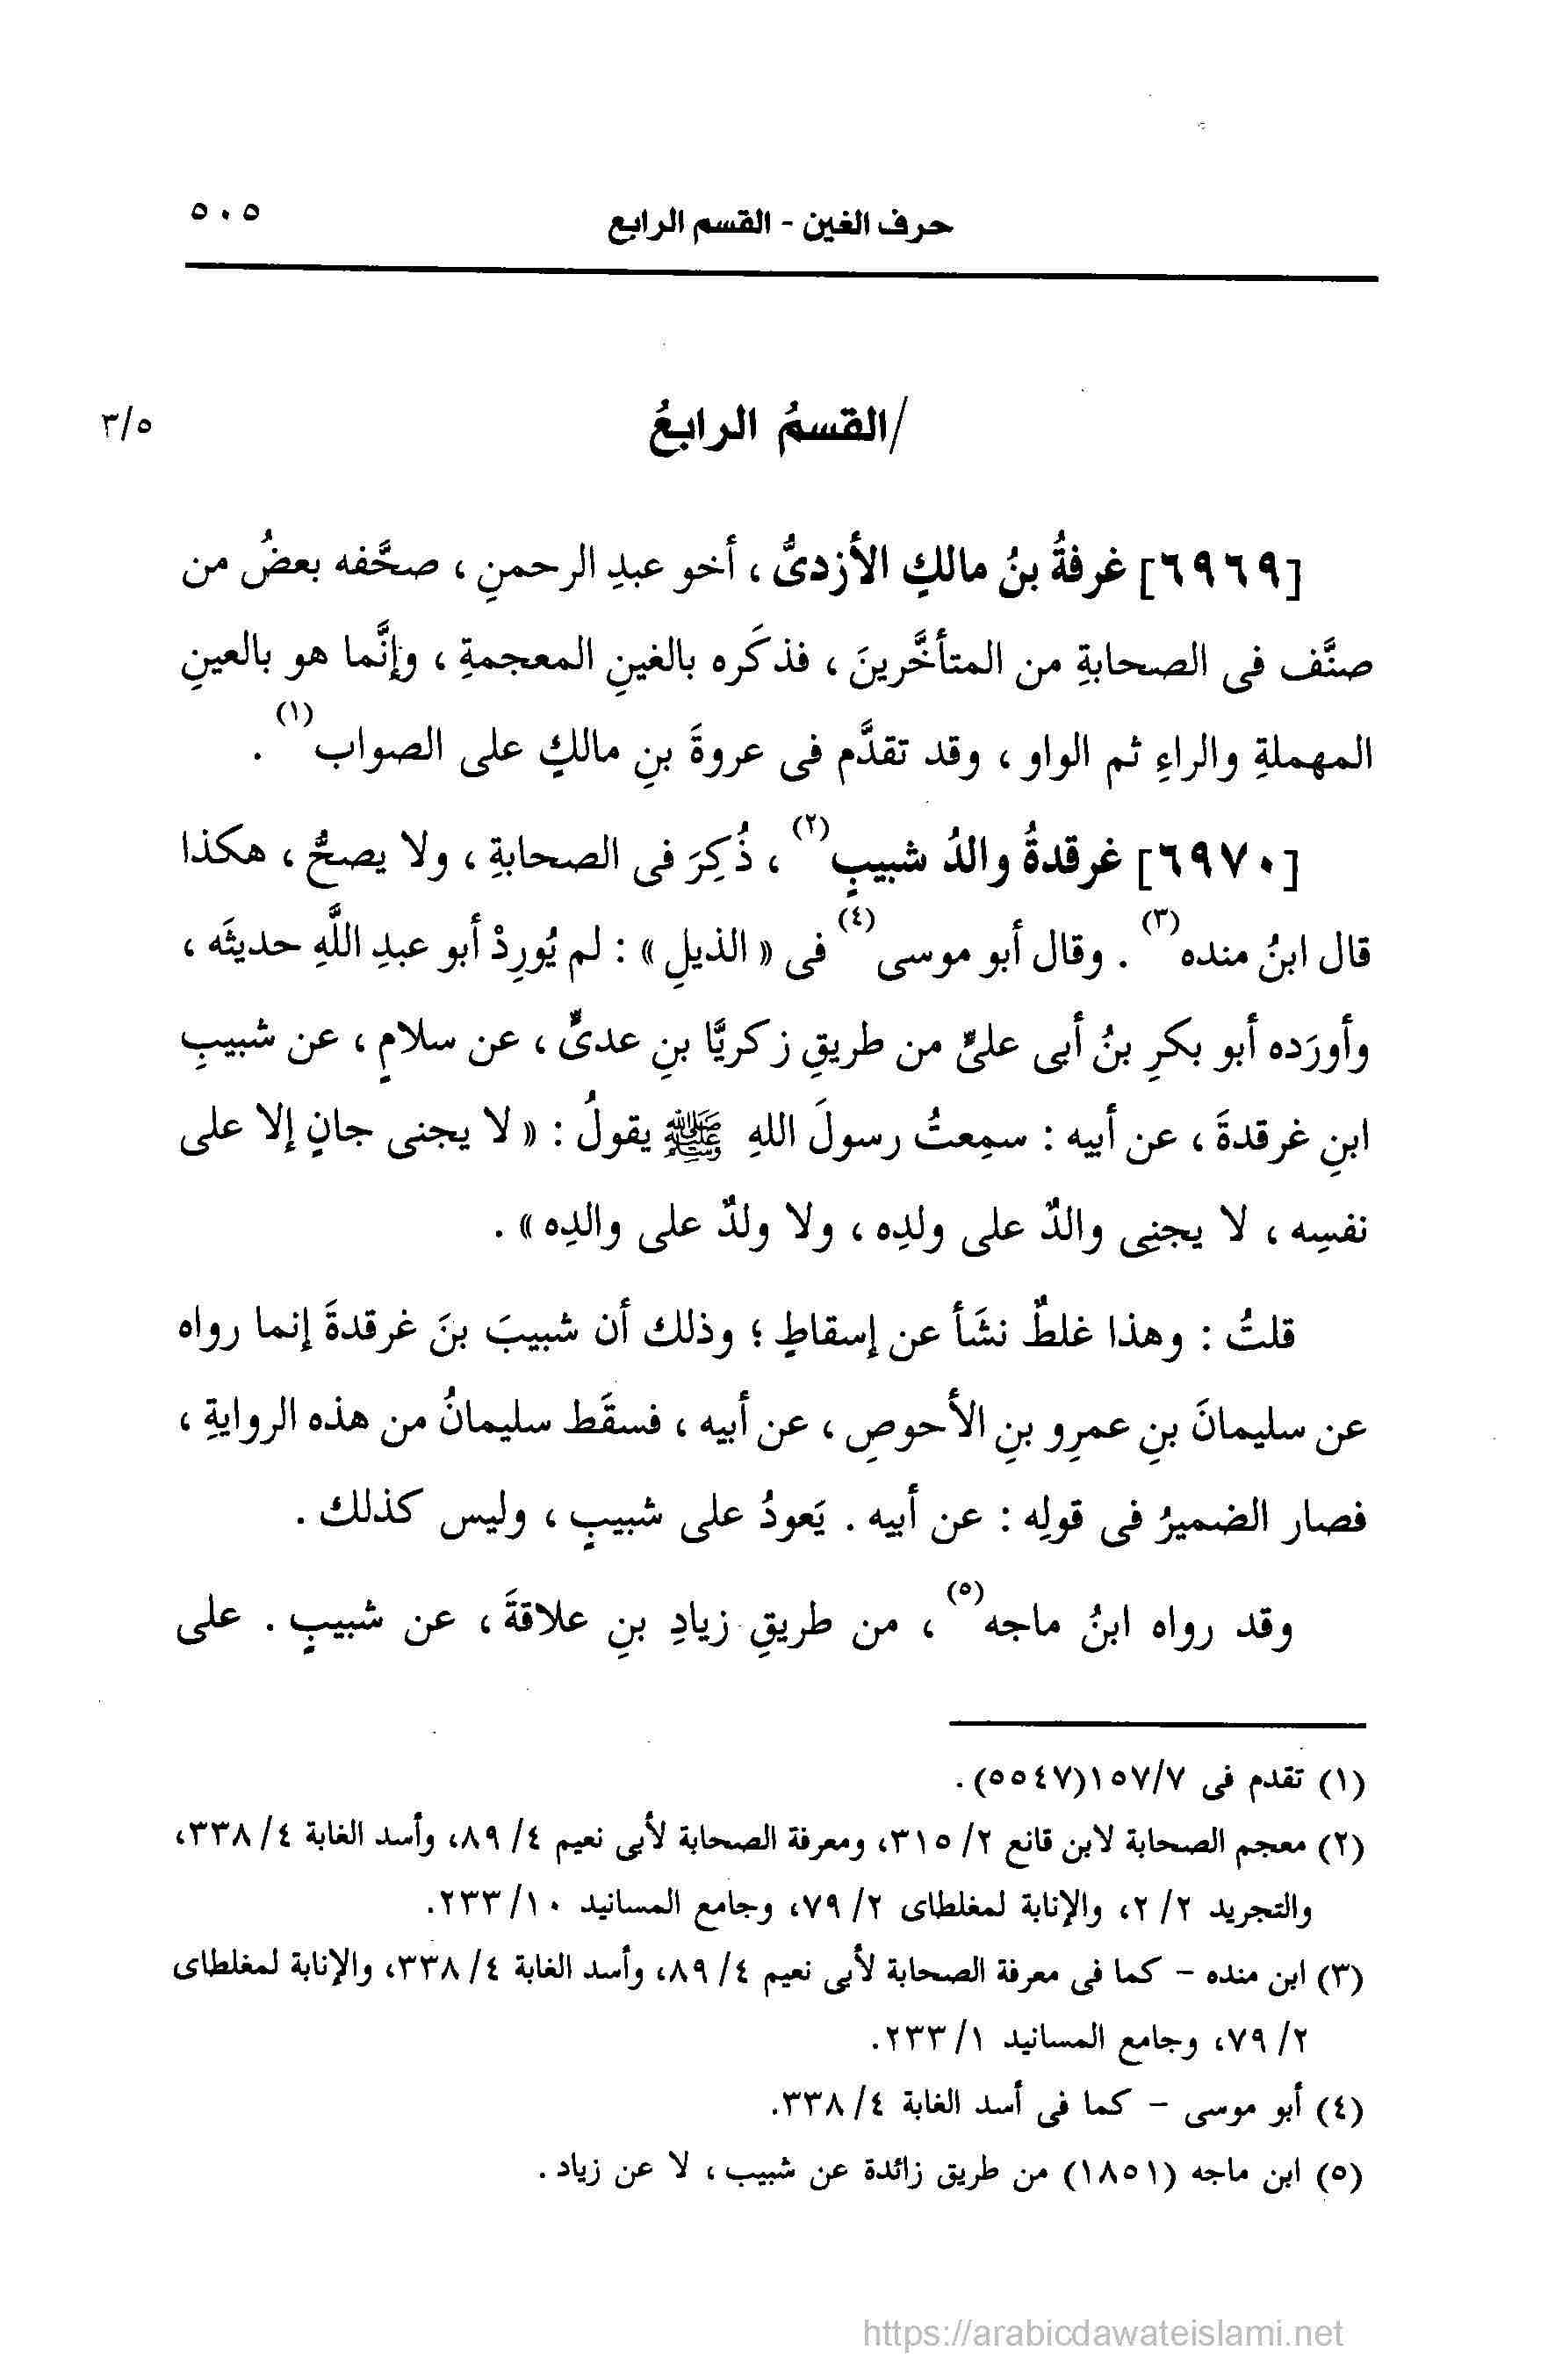 حرف الغين - القسم الرابع ٥٠٥
/القسمُ الرابعُ ٣/٥
[٦٩٦٩] غرفةُ بنُ مالكٍ الأزدىُّ ، أخو عبدِ الرحمنِ ، صحَّفه بعضُ من
صنَّف فى الصحابةِ من المتأخَّرينَ ، فذكَره بالغينِ المعجمةِ ، وإنَّما هو بالعينِ
المهملةِ والراءِ ثم الواو ، وقد تقدَّم فى عروةَ بنِ مالكٍ على الصواب(١) .
[٦٩٧٠] غرقدةُ والدُ شبيبٍ(٢) ، ذُكِرَ فى الصحابةِ ، ولا يصحُّ ، هكذا
قال ابنُ منده(٣) . وقال أبو موسى(٤) فى « الذيلِ » : لم يُورِدْ أبو عبدِ اللَّهِ حديثَه ،
وأورَده أبو بكرِ بنُ أبى علىٍّ من طريقِ زكريَّا بنِ عدىٍّ ، عن سلامٍ ، عن شبيبِ
ابنِ غرقدةَ ، عن أبيه : سمِعتُ رسولَ اللهِ ﷺ يقولُ : « لا يجنى جانٍ إلا على
نفسِه ، لا يجنِى والدٌ على ولدِه ، ولا ولدٌ على والدِه » .
قلتُ : وهذا غلطٌ نشَأ عن إسقاطٍ ؛ وذلك أن شبيبَ بنَ غرقدةَ إنما رواه
عن سليمانَ بنِ عمرِو بنِ الأحوصِ ، عن أبيه ، فسقَط سليمانُ من هذه الروايةِ ،
فصار الضميرُ فى قولِه : عن أبيه . يَعودُ على شبيبٍ ، وليس كذلك .
وقد رواه ابنُ ماجه(٥) ، من طريقِ زيادِ بنِ علاقةَ ، عن شبيبٍ . على
(١) تقدم فى ١٥٧/٧(٥٥٤٧) .
(٢) معجم الصحابة لابن قانع ٢/ ٣١٥، ومعرفة الصحابة لأبى نعيم ٤/ ٨٩، وأسد الغابة ٤/ ٣٣٨،
والتجريد ٢/ ٢، والإنابة لمغلطاى ٢/ ٧٩، وجامع المسانيد ١٠/ ٢٣٣.
(٣) ابن منده - كما فى معرفة الصحابة لأبى نعيم ٤/ ٨٩، وأسد الغابة ٤/ ٣٣٨، والإنابة لمغلطاى
٢/ ٧٩، وجامع المسانيد ١/ ٢٣٣.
(٤) أبو موسى - كما فى أسد الغابة ٤/ ٣٣٨.
(٥) ابن ماجه (١٨٥١) من طريق زائدة عن شبيب ، لا عن زياد .
https://arabicdawateislami.net